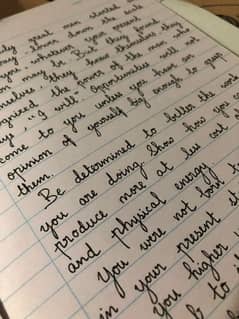 great men started
down the
your present
you may be. But they found
themselves. They
the power of the man who
says, "I will". Opportunities will not
come to you unless you have an
opinion of yourself big enough to grasp
them.
Be determined to better the work
you are doing. Show how you can
produce more at less cost of
and physical energy.
You were not born to
in your present
you higher
to